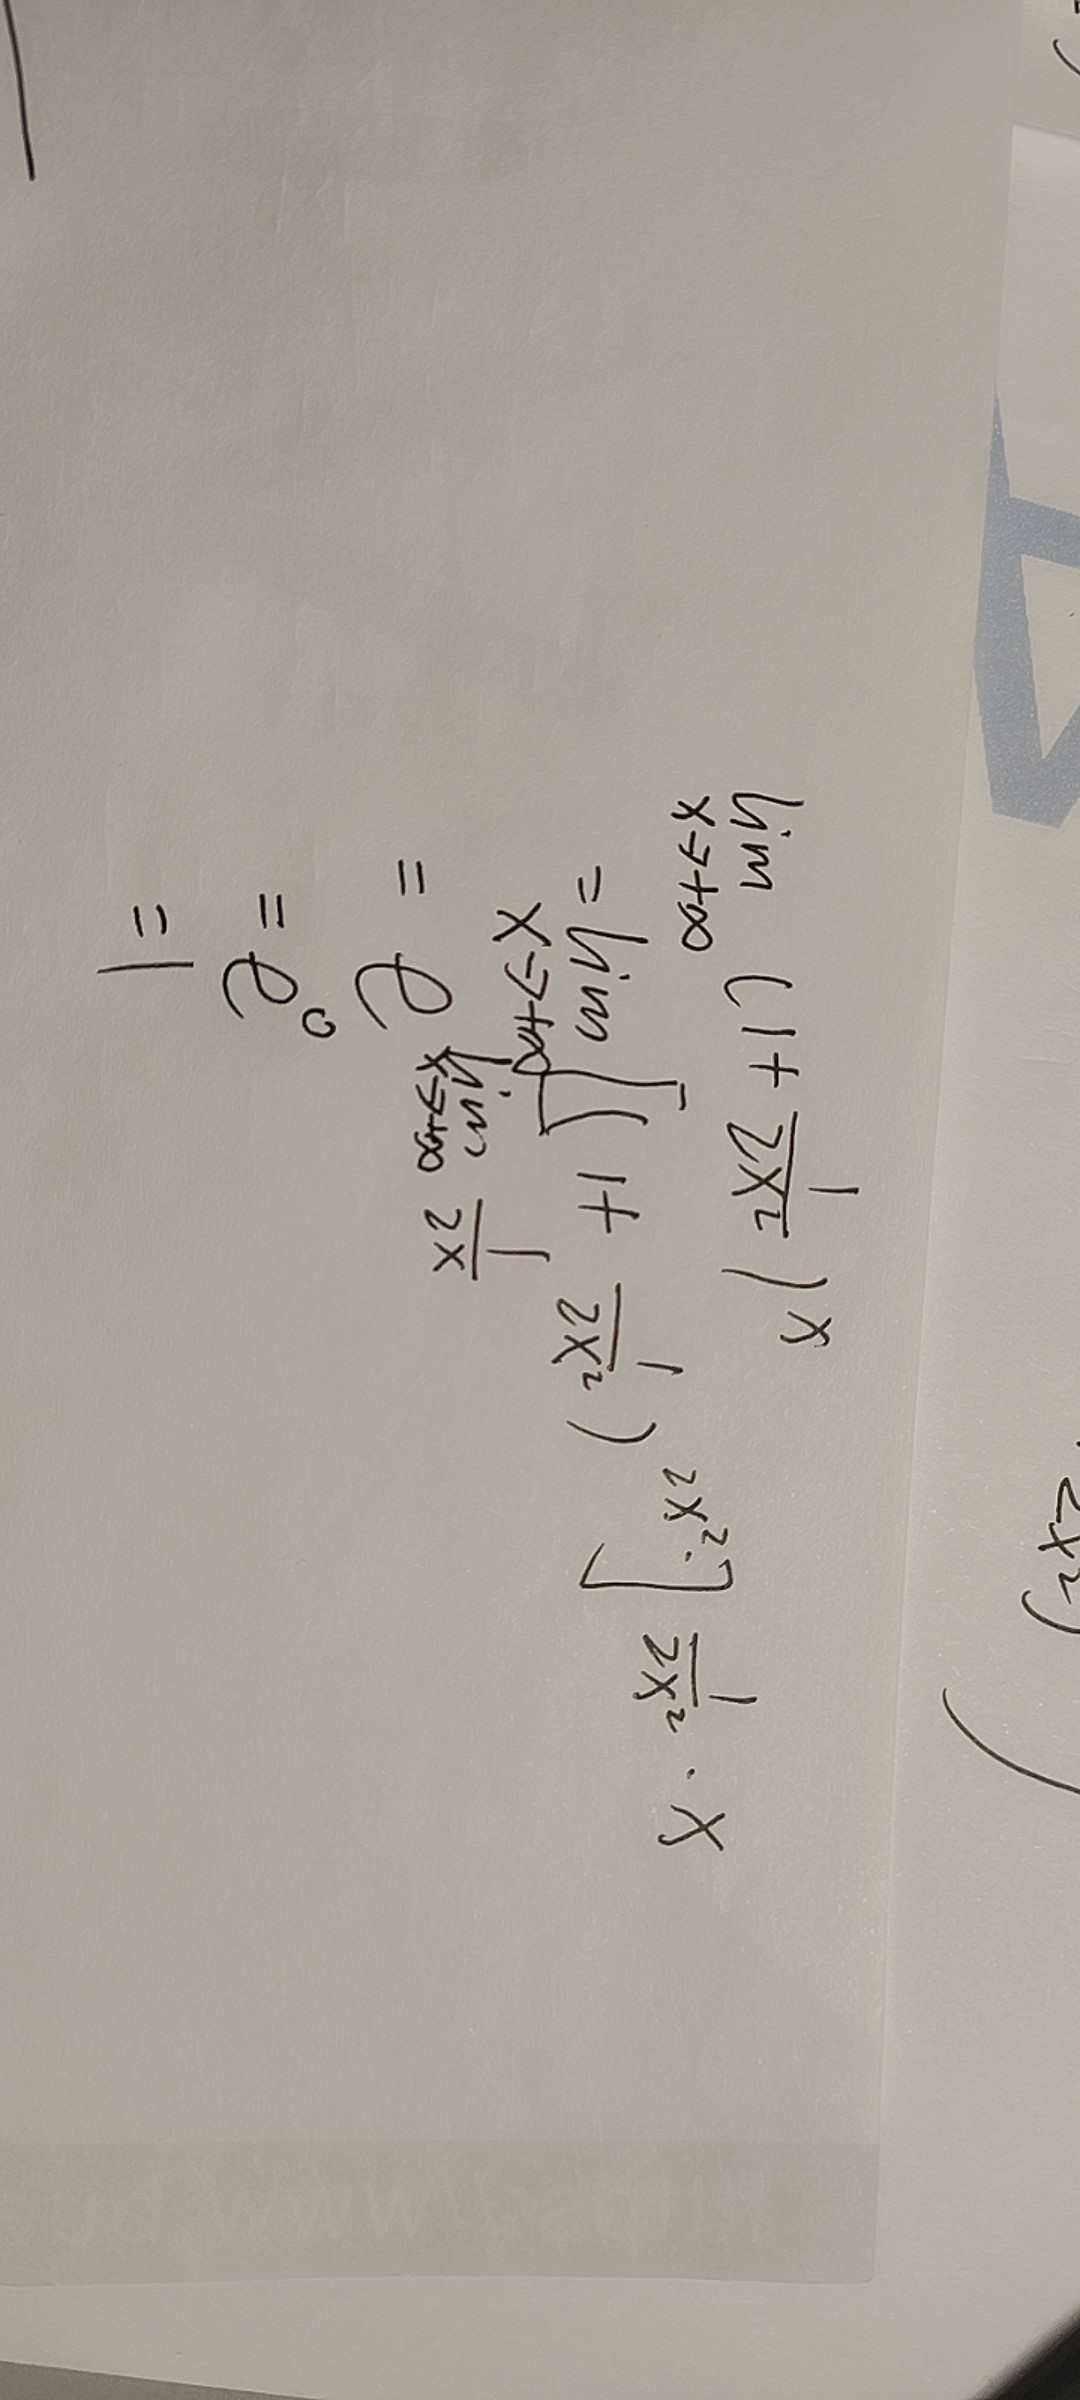 lim x→+∞ (1 + 1/(2x²))^x
= lim x→+∞ [(1 + 1/(2x²))^(2x²)]^(1/(2x²) · x)
= e^(lim x→+∞ 1/(2x))
= e^0
= 1
2x²)